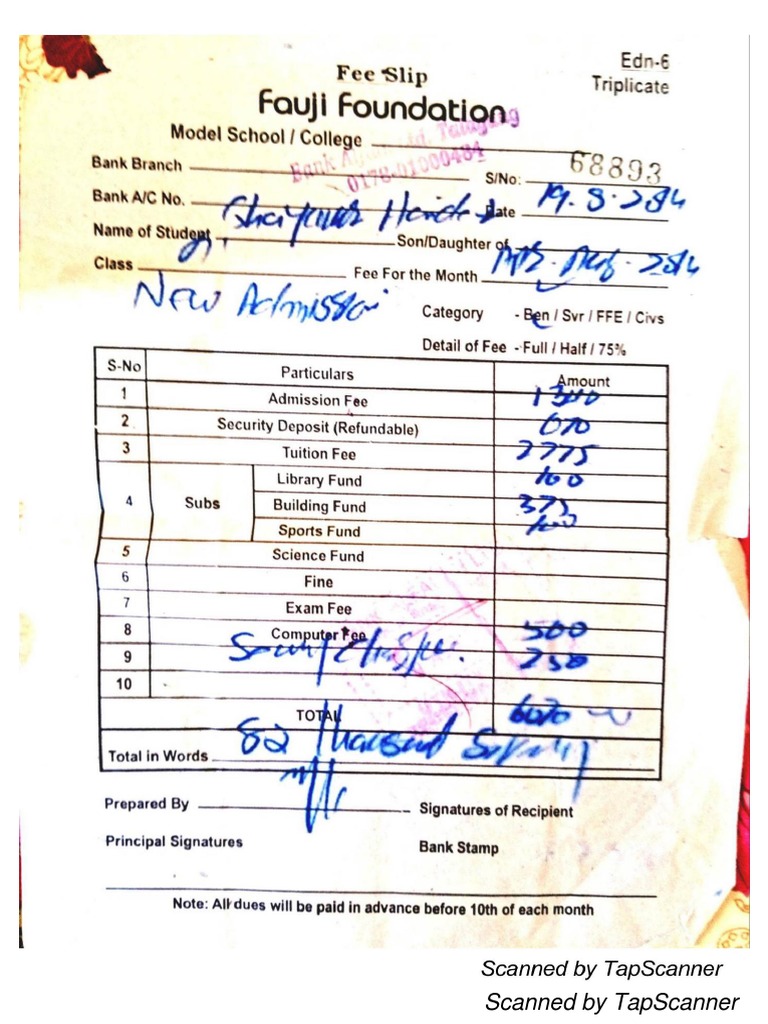 Edn-6
Fee Slip
Triplicate
Fauji Foundation
Model School / College
Bank Branch Bank Talagang
0178-01000484
S/No: 68893
Bank A/C No. Date 19.8.2014
Name of Student Son/Daughter of
Class Fee For the Month Aug. 2014
New Admission
Category - Ben / Svr / FFE / Civs
Detail of Fee - Full / Half / 75%
S-No Particulars Amount
1 Admission Fee 1300
2 Security Deposit (Refundable) 670
3 Tuition Fee 2775
4 Subs Library Fund 100
Building Fund 375
Sports Fund 100
5 Science Fund
6 Fine
7 Exam Fee
8 Computer Fee 500
9 250
10
TOTAL 6070
Total in Words Thousand
Prepared By Signatures of Recipient
Principal Signatures Bank Stamp
Note: All dues will be paid in advance before 10th of each month
Scanned by TapScanner
Scanned by TapScanner